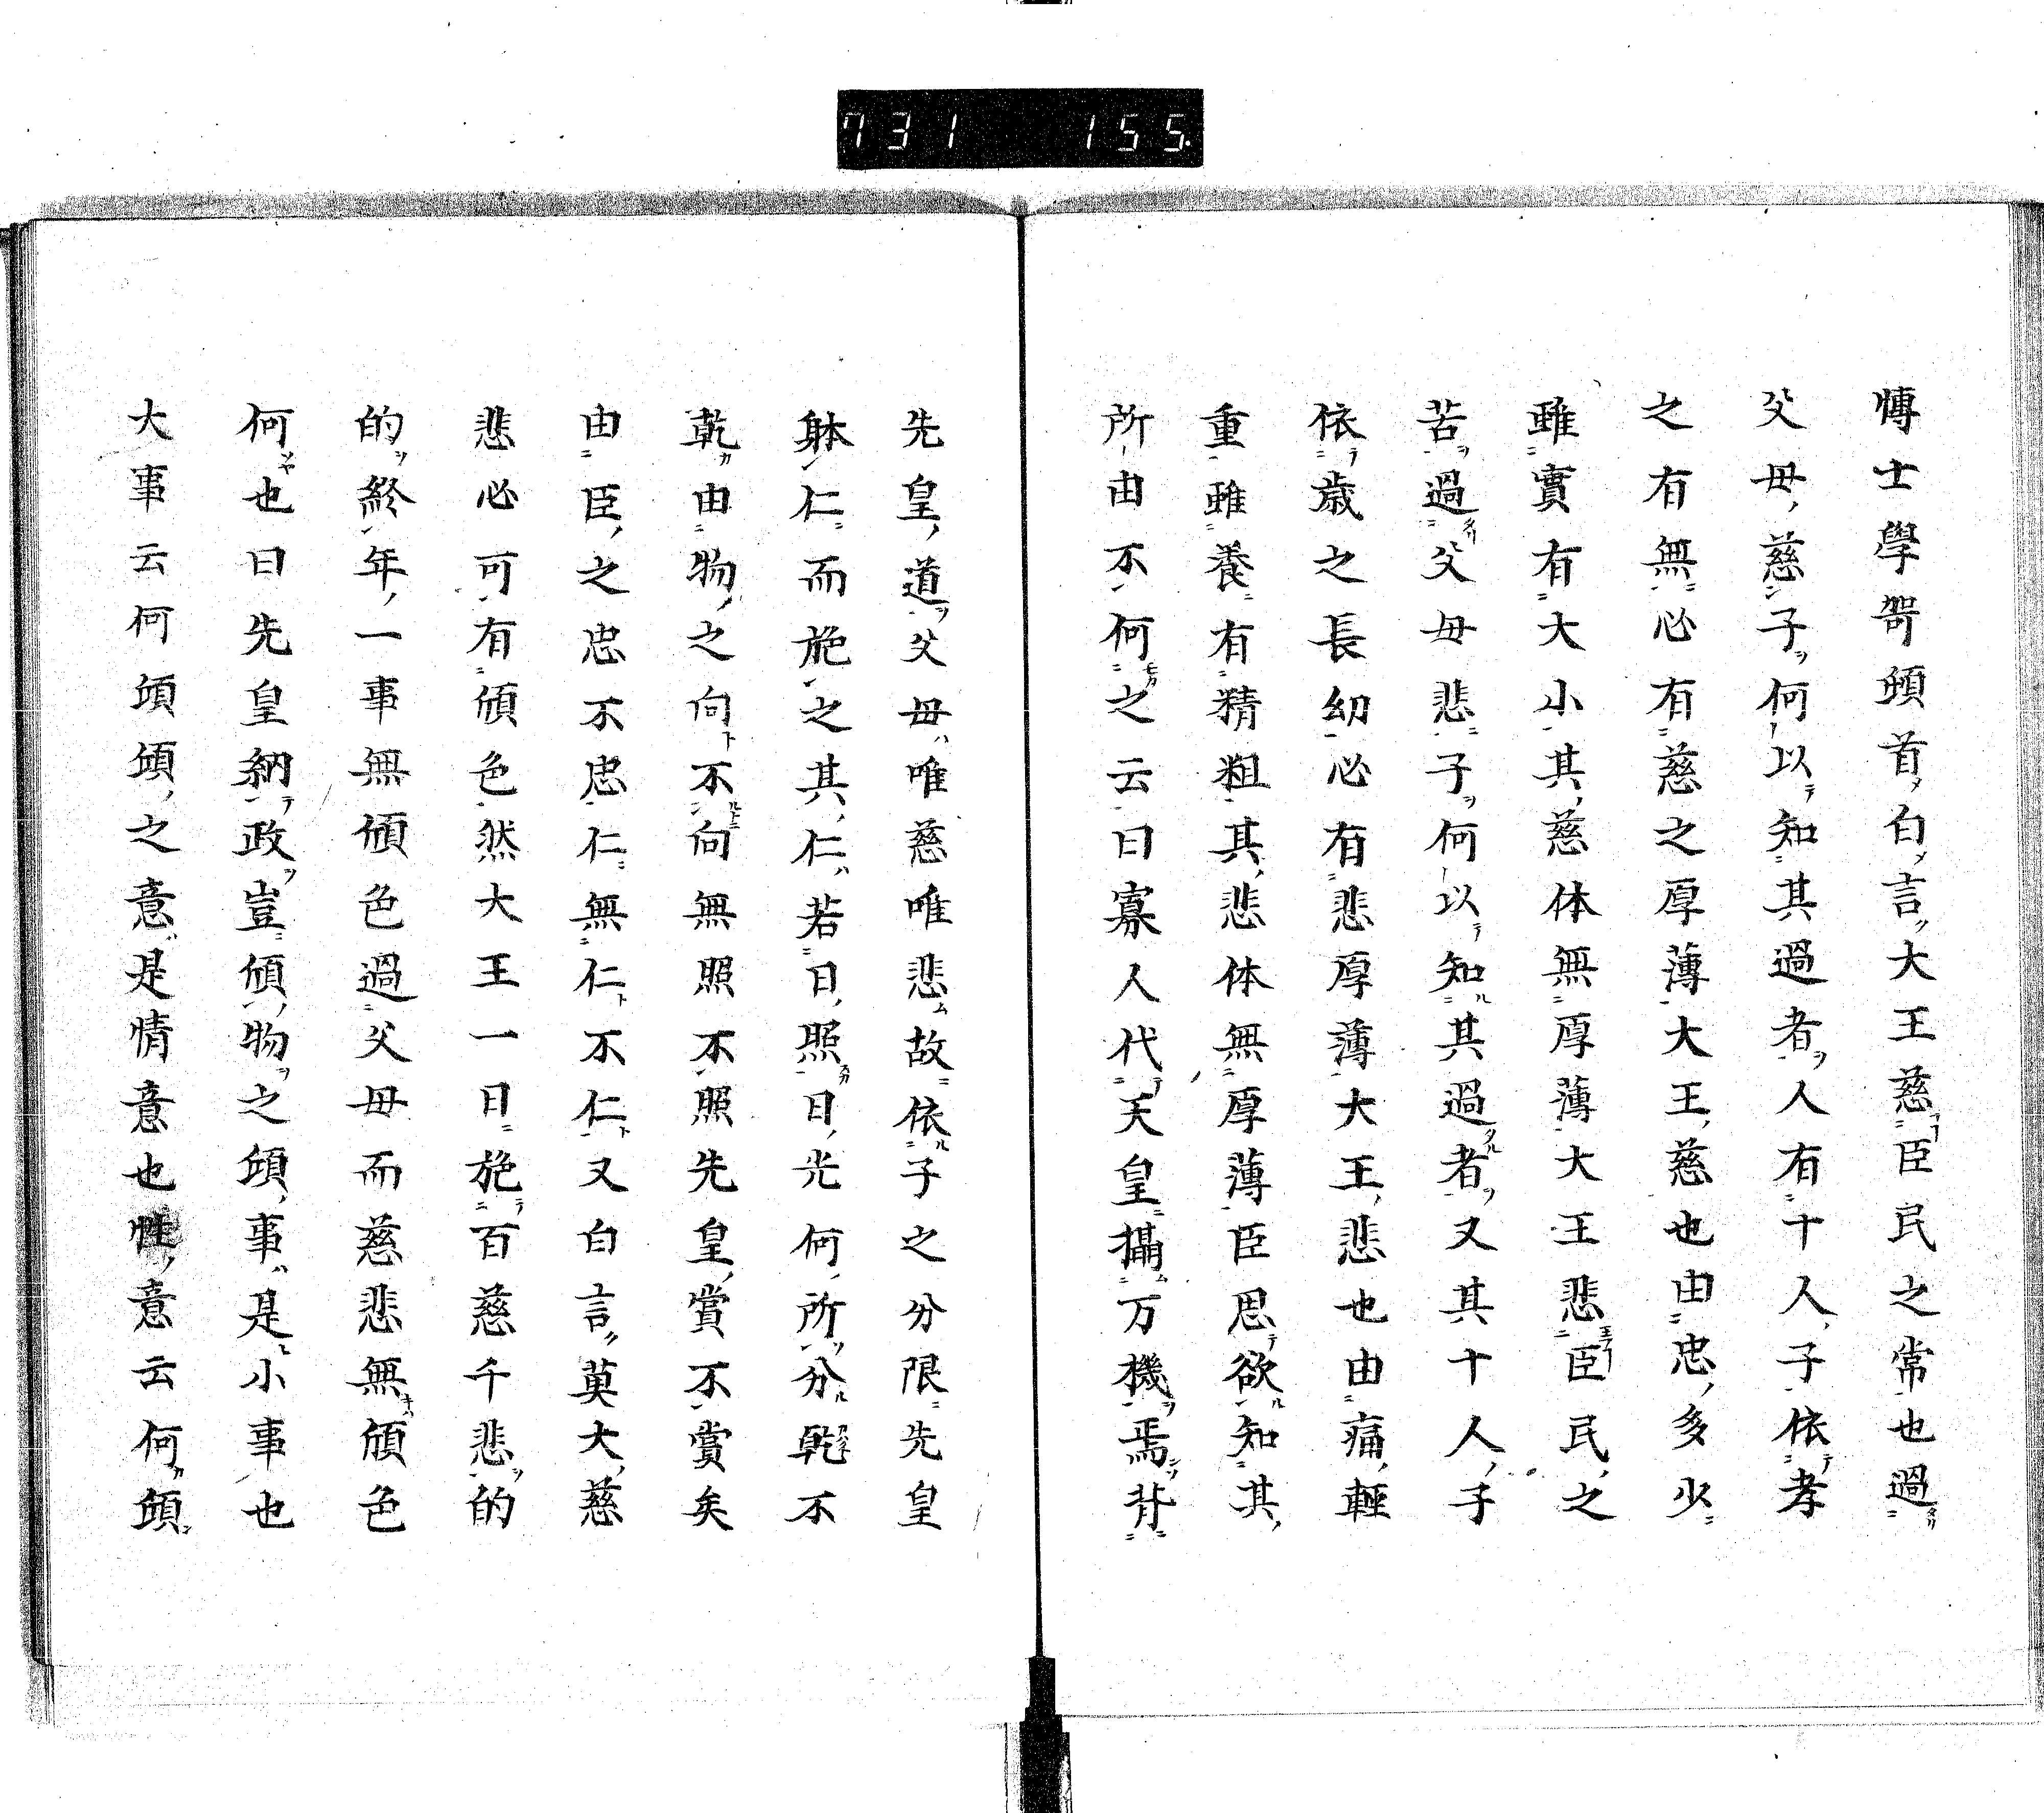 731 155.
愽士學哿頓首白言大王慈臣民之常也過
父毋慈子何以知其過者人有十人子依孝
之有無必有慈之厚薄大王慈也由忠多少
雖實有大小其慈体無厚薄大王悲臣民之
苦過父毋悲子何以知其過者又其十人子
依歳之長幼必有悲厚薄大王悲也由痛輕
重雖養有精粗其悲体無厚薄臣思欲知其
所由不何之云曰寡人代天皇攝万機焉背
先皇道父毋唯慈唯悲故依子之分限先皇
躰仁而施之其仁若日照日光何所分乾不
乾由物之向不向無照不照先皇賞不賞矣
由臣之忠不忠仁無仁不仁又白言莫大慈
悲必可有頎色然大王一日施百慈千悲的
的終年一事無頎色過父毋而慈悲無頎色
何也曰先皇納政豈頎物之頌事是小事也
大事云何頌頌之意是情意也性意云何頌